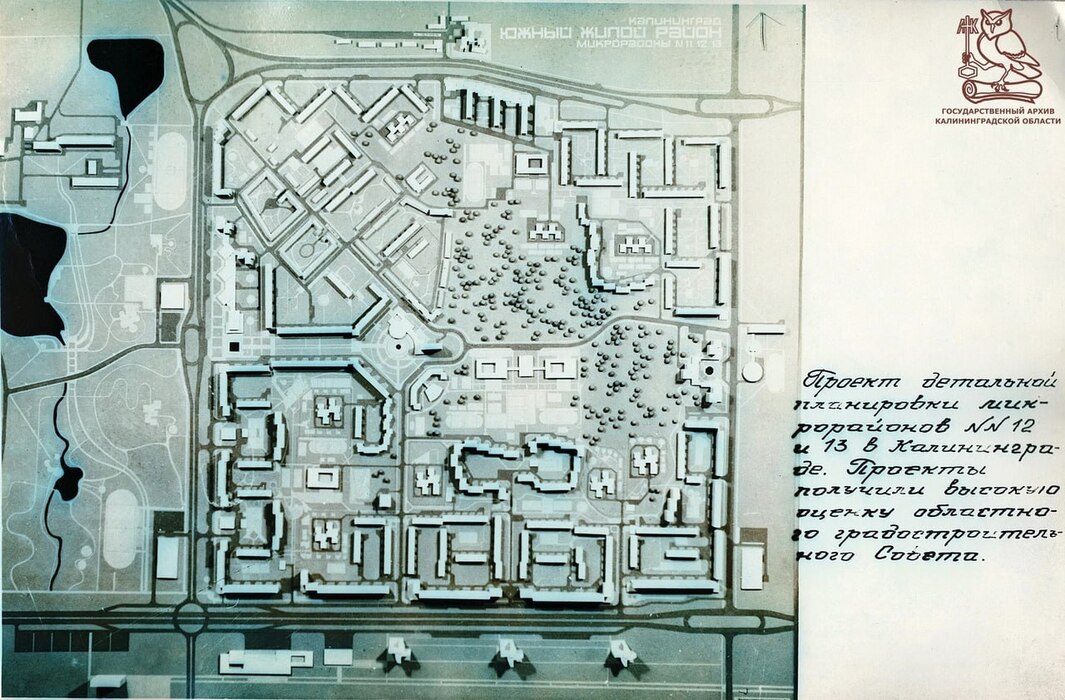 КАЛИНИНГРАД
ЮЖНЫЙ ЖИЛОЙ РАЙОН
МИКРОРАЙОНЫ N 11 12 13
ГОСУДАРСТВЕННЫЙ АРХИВ
КАЛИНИНГРАДСКОЙ ОБЛАСТИ
Проект детальной
планировки мик-
рорайонов NN 12
и 13 в Калинингра-
де. Проекты
получили высокую
оценку областно-
го градостроитель-
ного Совета.